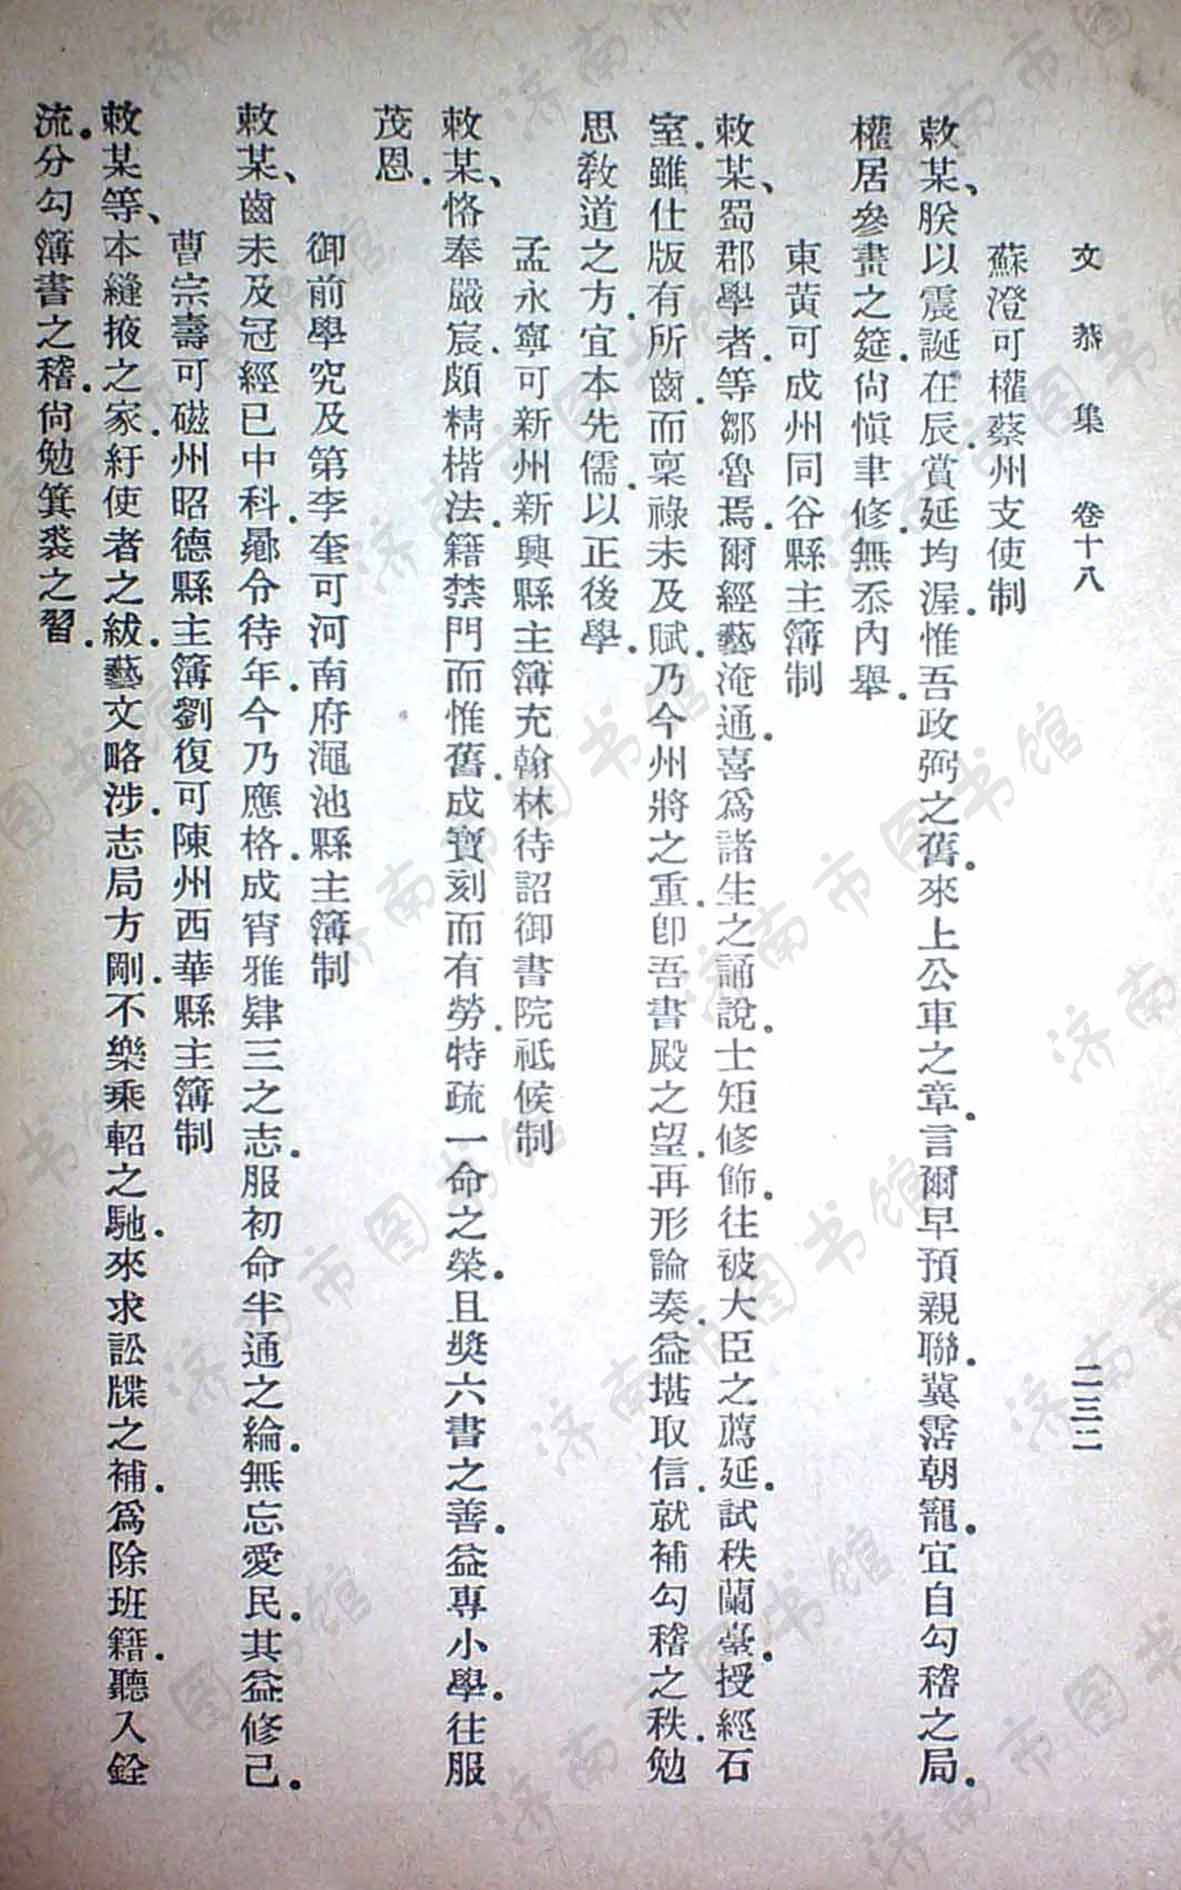 文恭集 卷十八 二三二
蘇澄可權蔡州支使制
敕某、朕以震誕在辰.賞延均渥.惟吾政弼之舊.來上公車之章.言爾早預親聯.冀霑朝寵.宜自勾稽之局.
權居參畫之筵.尙愼聿修.無忝內舉.
東黃可成州同谷縣主簿制
敕某、蜀郡學者.等鄒魯焉.爾經藝淹通.喜爲諸生之誦說.士矩修飾.往被大臣之薦延.試秩蘭臺.授經石
室.雖仕版有所齒.而稟祿未及賦.乃今州將之重.卽吾書殿之望.再形論奏.益堪取信.就補勾稽之秩.勉
思敎道之方.宜本先儒.以正後學.
孟永寧可新州新興縣主簿充翰林待詔御書院祗候制
敕某、恪奉嚴宸.頗精楷法.籍禁門而惟舊.成寶刻而有勞.特疏一命之榮.且獎六書之善.益專小學.往服
茂恩.
御前學究及第李奎可河南府澠池縣主簿制
敕某、齒未及冠.經已中科.曏令待年.今乃應格.成宵雅肄三之志.服初命半通之綸.無忘愛民.其益修己.
曹宗壽可磁州昭德縣主簿劉復可陳州西華縣主簿制
敕某等、本縫掖之家.紆使者之紱.藝文略涉.志局方剛.不樂乘軺之馳.來求訟牒之補.爲除班籍.聽入銓
流.分勾簿書之稽.尙勉箕裘之習.
济南市图书馆